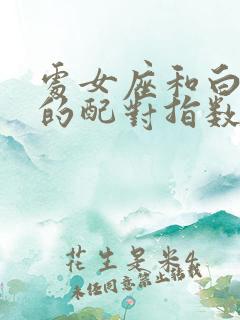 處女座和白
的配對指數
花生是米4
未經同意禁止轉載